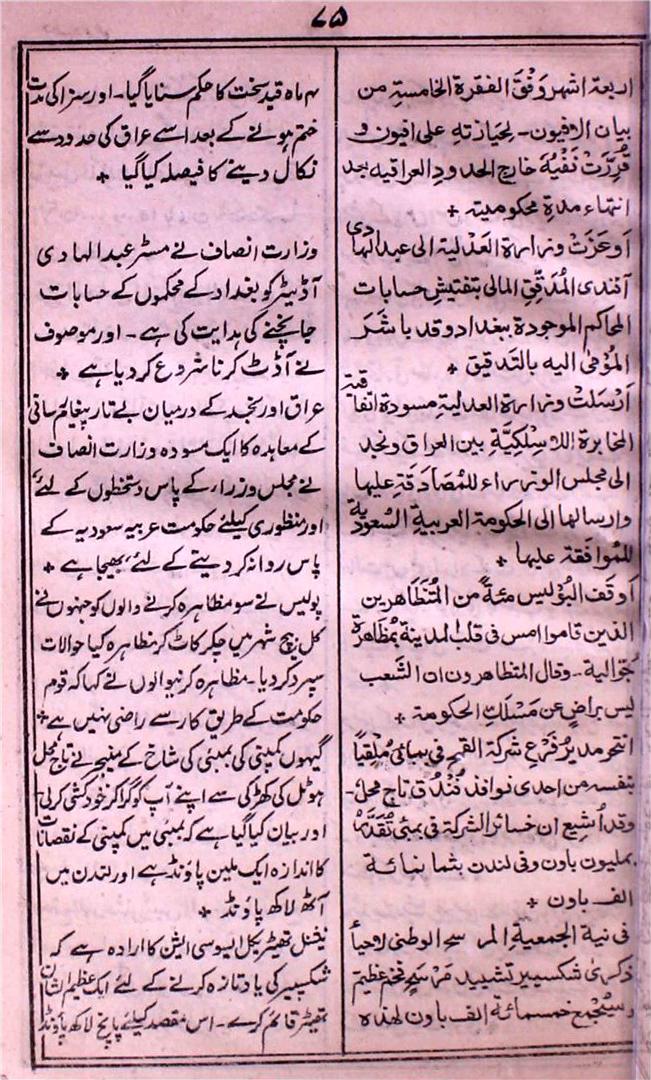 ۷۵
اربعة اشهر وَفْقَ الفقرة الخامسةِ من
بيان الافيون۔ لِحيازتهِ على افيون و
قُرِّرَتْ نَفْيُهٗ خارج الحدودِ العراقيه بعد
انتهاء مدة محكوميته +
اَوعَزَتْ وزارة العَدْلية الى عبدالهادى
آفندى المُدَقِّقِ المالى بتفتيشِ حسابات
المحاكم الموجودة ببغداد وقد باشَرَ
المُوْمٰى اليه بالتَدقيق +
اَرْسَلَتْ وزارة العدلية مسودة اتفاقية
المخابرة اللاسِلْكِيَّةِ بين العراق ونجد
الى مجلس الوزراء للمُصَادَقَةِ عليها
وارسالها الى الحكومة العربيةِ السُّعوديةِ
للمُوافقة عليها +
اَوقَفَ البُؤليس مئةً من المُتَظَاهِرين
الذين قاموا امس فى قلب المدينة بمُظاهرةٍ
تجوّالية۔ وقال المتظاهرون ان الشَعب
ليس براضٍ عن مَسْلَكِ الحكومة +
انتحر مديرُ فَرْعِ شركة القمح فى بمبائى مُلقِياً
بنفسه من احدى نوافذ فُنْدُق تاج محل۔
وقد اُشيع ان خسائر الشركة فى بمبئى تُقَدَّرُ
بمليون باون وفى لندن بثمانمائة
الف باون +
فى نية الجمعية المسرحية الوطنى لاحياءِ
ذكرىٰ شكسبير تشييد مَرْسَحٍ فخمٍ عظيمٍ
وسيُجْمع خمسمائة الف باون لهذه
۴ ماہ قید سخت کا حکم سنایا گیا۔ اور سزا کی مدت
ختم ہونے کے بعد اسے عراق کی حدود سے
نکال دینے کا فیصلہ کیا گیا +
وزارت انصاف نے مسٹر عبدالہادی
آڈیٹر کو بغداد کے محکموں کے حسابات
جانچنے کی ہدایت کی ہے۔ اور موصوف
نے آڈٹ کرنا شروع کر دیا ہے +
عراق اور نجد کے درمیان بے تار پیغام رسانی
کے معاہدہ کا ایک مسودہ وزارت انصاف
نے مجلس وزراء کے پاس دستخطوں کے لئے،
اور منظوری کیلئے حکومت عربیہ سعودیہ کے
پاس روانہ کر دینے کے لئے، بھیجا ہے +
پولیس نے سو مظاہرہ کرنے والوں کو جنہوں نے
کل بیچ شہر میں چکر کاٹ کر مظاہرہ کیا حوالات
سپرد کر دیا۔ مظاہرہ کرنیوالوں نے کہا کہ قوم
حکومت کے طریق کار سے راضی نہیں ہے +
گیہوں کمپنی کی بمبئی کی شاخ کے منیجر نے تاج محل
ہوٹل کی کھڑکی سے اپنے آپ کو گرا کر خودکشی کرلی
اور بیان کیا گیا ہے کہ بمبئی میں کمپنی کے نقصانات
کا اندازہ ایک ملین پاؤنڈ ہے اور لندن میں
آٹھ لاکھ پاؤنڈ +
نیشنل تھیٹریکل ایسوسی ایشن کا ارادہ ہے کہ
شکسپیر کی یاد تازہ کرنے کے لئے ایک عظیم الشان
تھیٹر قائم کرے۔ اس مقصد کیلئے پانچ لاکھ پاؤنڈ